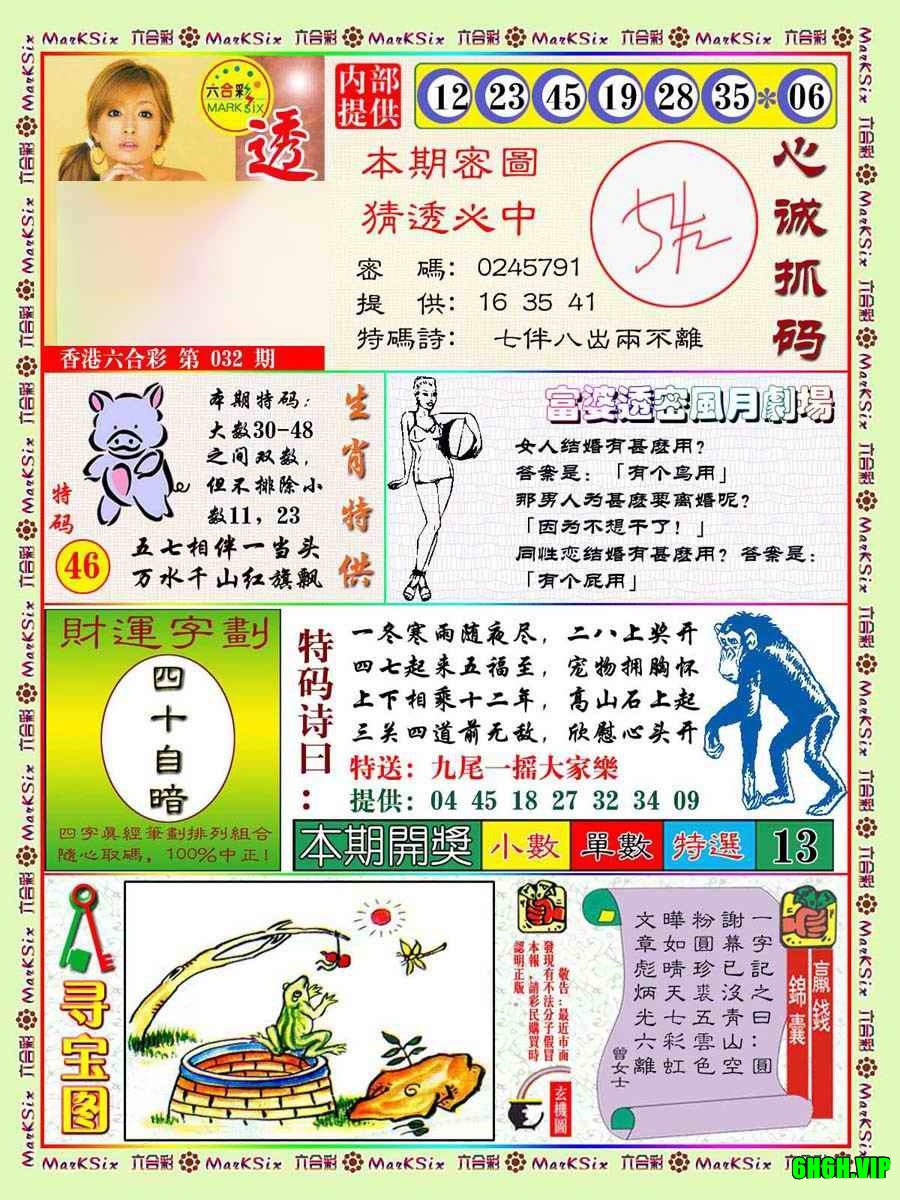 MarKSix 六合彩 MarKSix 六合彩 MarKSix 六合彩 MarKSix 六合彩 MarKSix 六合彩
六合彩
MARK SIX
透
内部
提供
12 23 45 19 28 35 * 06
本期密圖
猜透必中
密 碼: 0245791
提 供: 16 35 41
特碼詩: 七伴八出兩不離
心诚抓码
香港六合彩 第 032 期
特码
46
本期特码:
大数30-48
之间双数,
但不排除小
数11,23
五七相伴一当头
万水千山红旗飘
生肖特供
富婆透密風月劇場
女人结婚有甚麽用?
答案是:「有个鸟用」
那男人为甚麽要离婚呢?
「因为不想干了!」
同性恋结婚有甚麽用?答案是:
「有个屁用」
財運字劃
四十自暗
四字真經筆劃排列組合
隨心取碼,100%中正!
特码诗曰:
一冬寒雨随夜尽,二八上奖开
四七起来五福至,宠物拥胸怀
上下相乘十二年,高山石上起
三关四道前无敌,欣慰心头开
特送:九尾一摇大家樂
提供:04 45 18 27 32 34 09
本期開獎 小數 單數 特選 13
寻宝图
敬告:最近市面
發現有不法分子假冒
本報,請彩民購買時
認明正版。
玄機圖
一字記之曰:圓
謝幕已沒青山空
粉圓珍裘五雲色
曄如晴天七彩虹
文章彪炳光六離
曾女士
贏錢
錦囊
MarKSix 六合彩 MarKSix 六合彩 MarKSix 六合彩 MarKSix 六合彩 MarKSix
6H6H.VIP